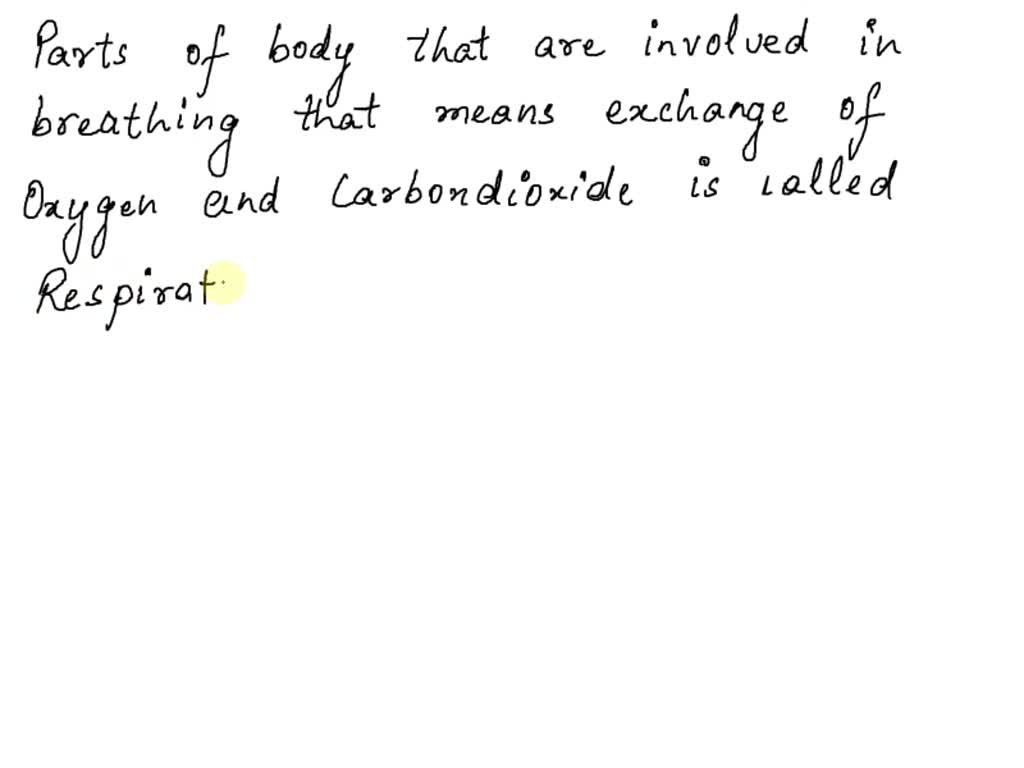 Parts of body that are involved in
breathing that means exchange of
Oxygen and Carbondioxide is called
Respirat